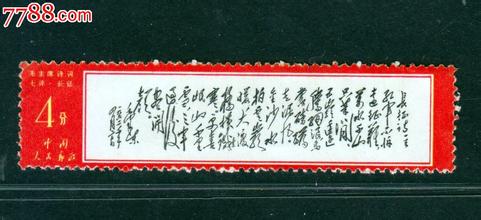 7788.com
毛主席诗词
七律·长征
4分
中国
人民邮政
长征诗一首
红军不怕
远征难
万水千山
只等闲
五岭逶迤
腾细浪
乌蒙磅礴
走泥丸
金沙水
拍云崖
暖大渡
桥横铁索
寒更喜
岷山千里
雪三军
过后
尽开
颜
毛泽东